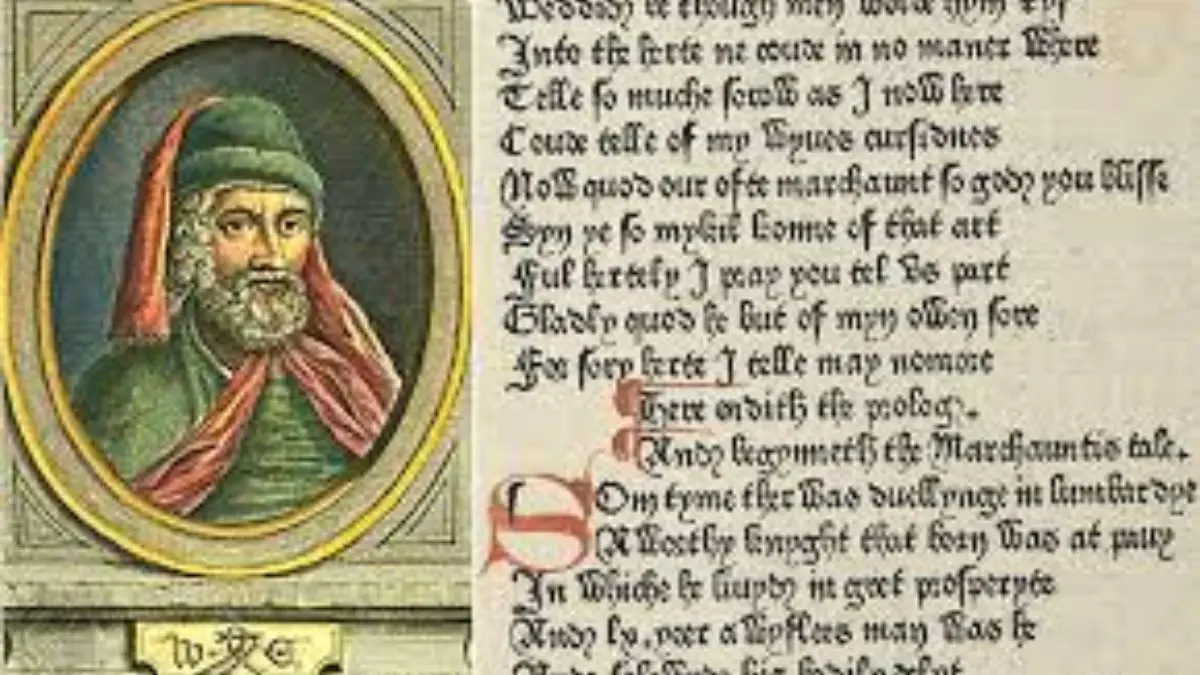 Weddid be though men wolde hym ryf
Into the herte ne coude in no maner Where
Telle so muche sorow as I now here
Coude telle of my Wyues cursidnes
Now quod our oste marchaunt so god you blisse
Syn ye so mykil konne of that art
Ful hertely I pray you tel vs part
Gladly quod he but of myn owen sore
For sory herte I telle may nomore
Here endith the prolog.
And begynneth the Marchauntis tale.
Som tyme ther was duellynge in lumbardye
A Worthy knyght that born Was at pauy
In Whiche he liuyd in gret prosperyte
And lx. yeer a Wyflees man Was he
And his bodily delyt
W C